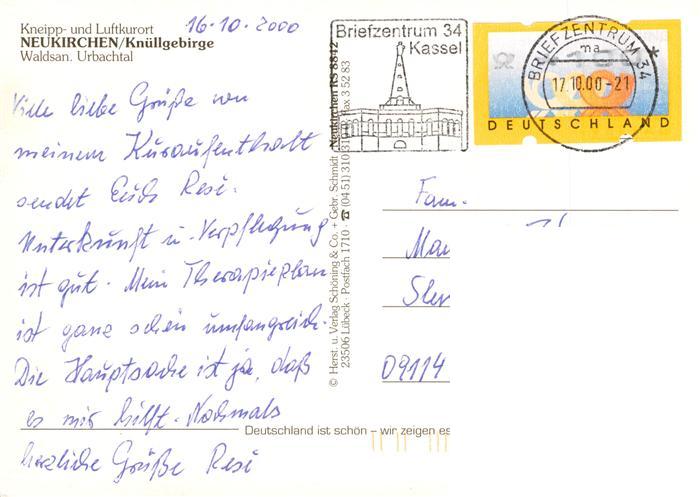 Kneipp- und Luftkurort
NEUKIRCHEN/Knüllgebirge
Waldsan. Urbachtal
16.10.2000
Viele liebe Grüße von
meinem Kuraufenthalt
sendet Euch Resi.
Unterkunft u. Verpflegung
ist gut. Mein Therapieplan
ist ganz schön umfangreich.
Die Hauptsache ist ja, daß
es mir hilft. Nochmals
herzliche Grüße Resi
Deutschland ist schön – wir zeigen es
© Herst. u. Verlag Schöning & Co. + Gebr. Schmidt
23506 Lübeck · Postfach 1710 · ☎ (04 51) 310
Neukirchen KS 8842
Briefzentrum 34
Kassel
BRIEFZENTRUM 34
ma
17.10.00-21
DEUTSCHLAND
Fam.
09114